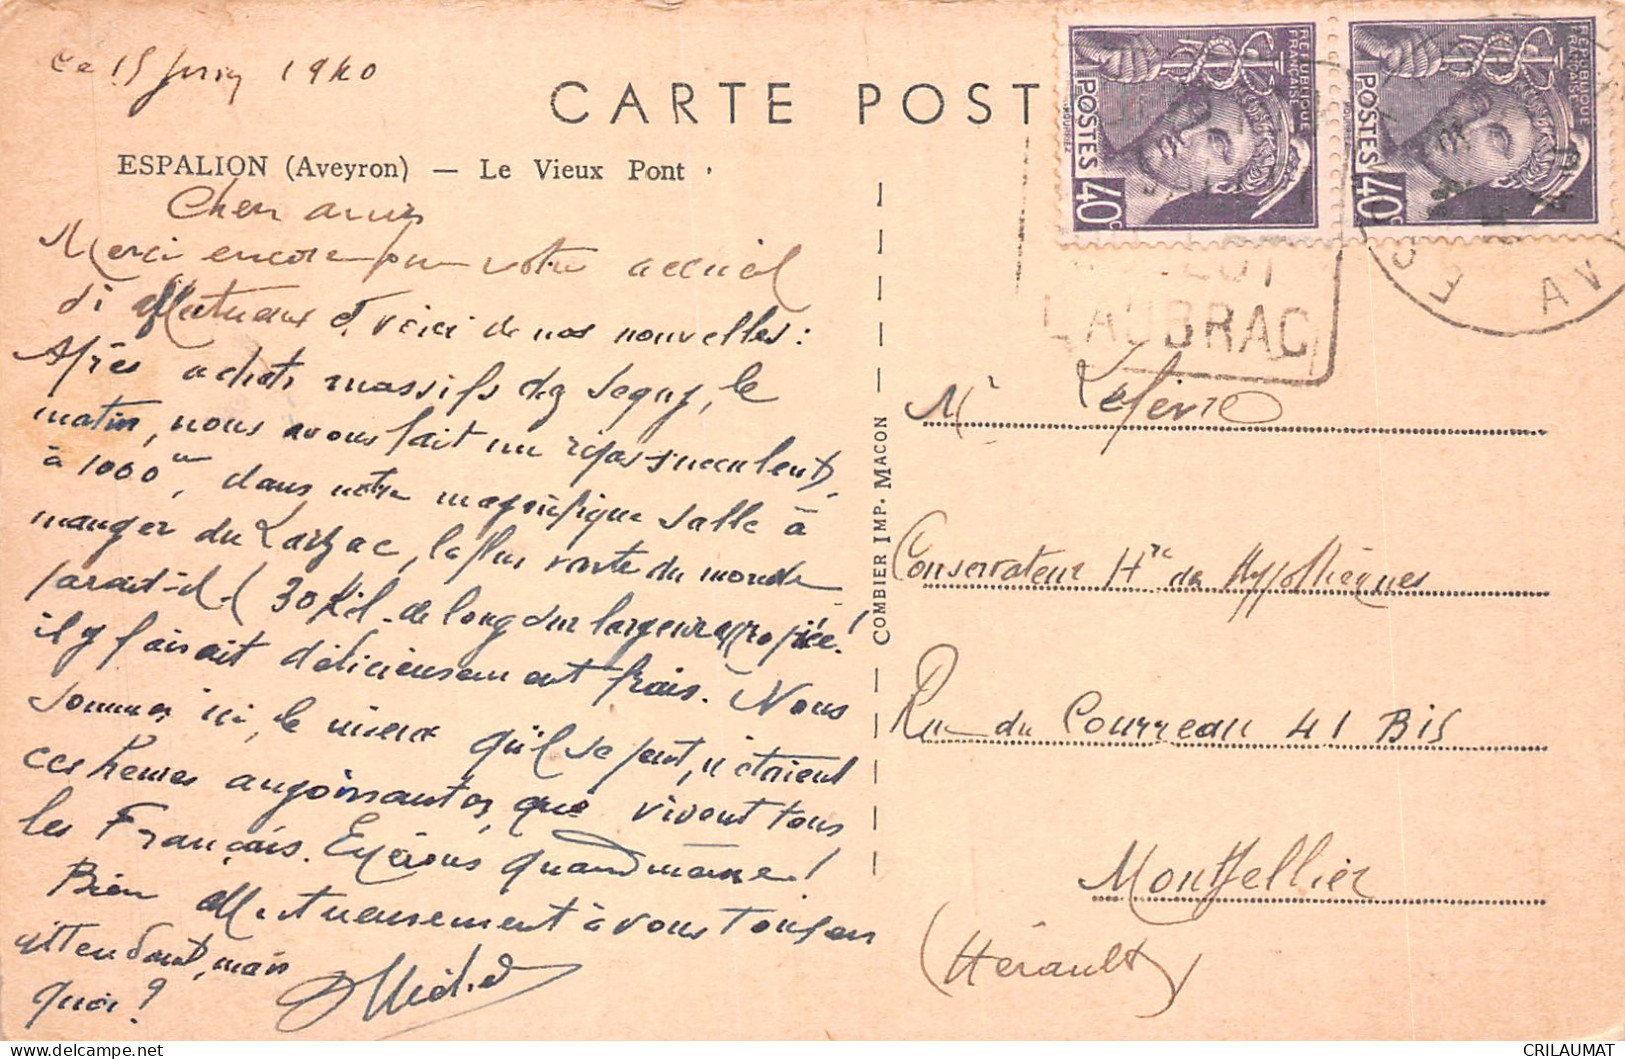 Ce 15 Juin 1940
CARTE POST
ESPALION (Aveyron) — Le Vieux Pont
Chers amis
Merci encore pour votre accueil
si affectueux et voici de nos nouvelles :
Après achats massifs de Segaz, le
matin, nous avons fait un repas succulent,
à 1000 m, dans notre magnifique salle à
manger du Larzac, la plus vaste du monde
parait-il ( 30 Kil. de long sur largeur appropriée !
il y faisait délicieusement frais. Nous
sommes ici, le mieux qu'il se peut, n'étaient
ces heures angoissantes que vivent tous
les Français. Espérons quand même !
Bien affectueusement à vous tous en
attendant, mais
quoi ?
COMBIER IMP. MACON
RÉPUBLIQUE FRANÇAISE
POSTES 40c
RÉPUBLIQUE FRANÇAISE
POSTES 40c
L'AUBRAC
AV
Mr Lefèvre
Conservateur Hre des Hypothèques
Rue du Courreau 41 BIS
Montpellier
(Hérault)
CRILAUMAT